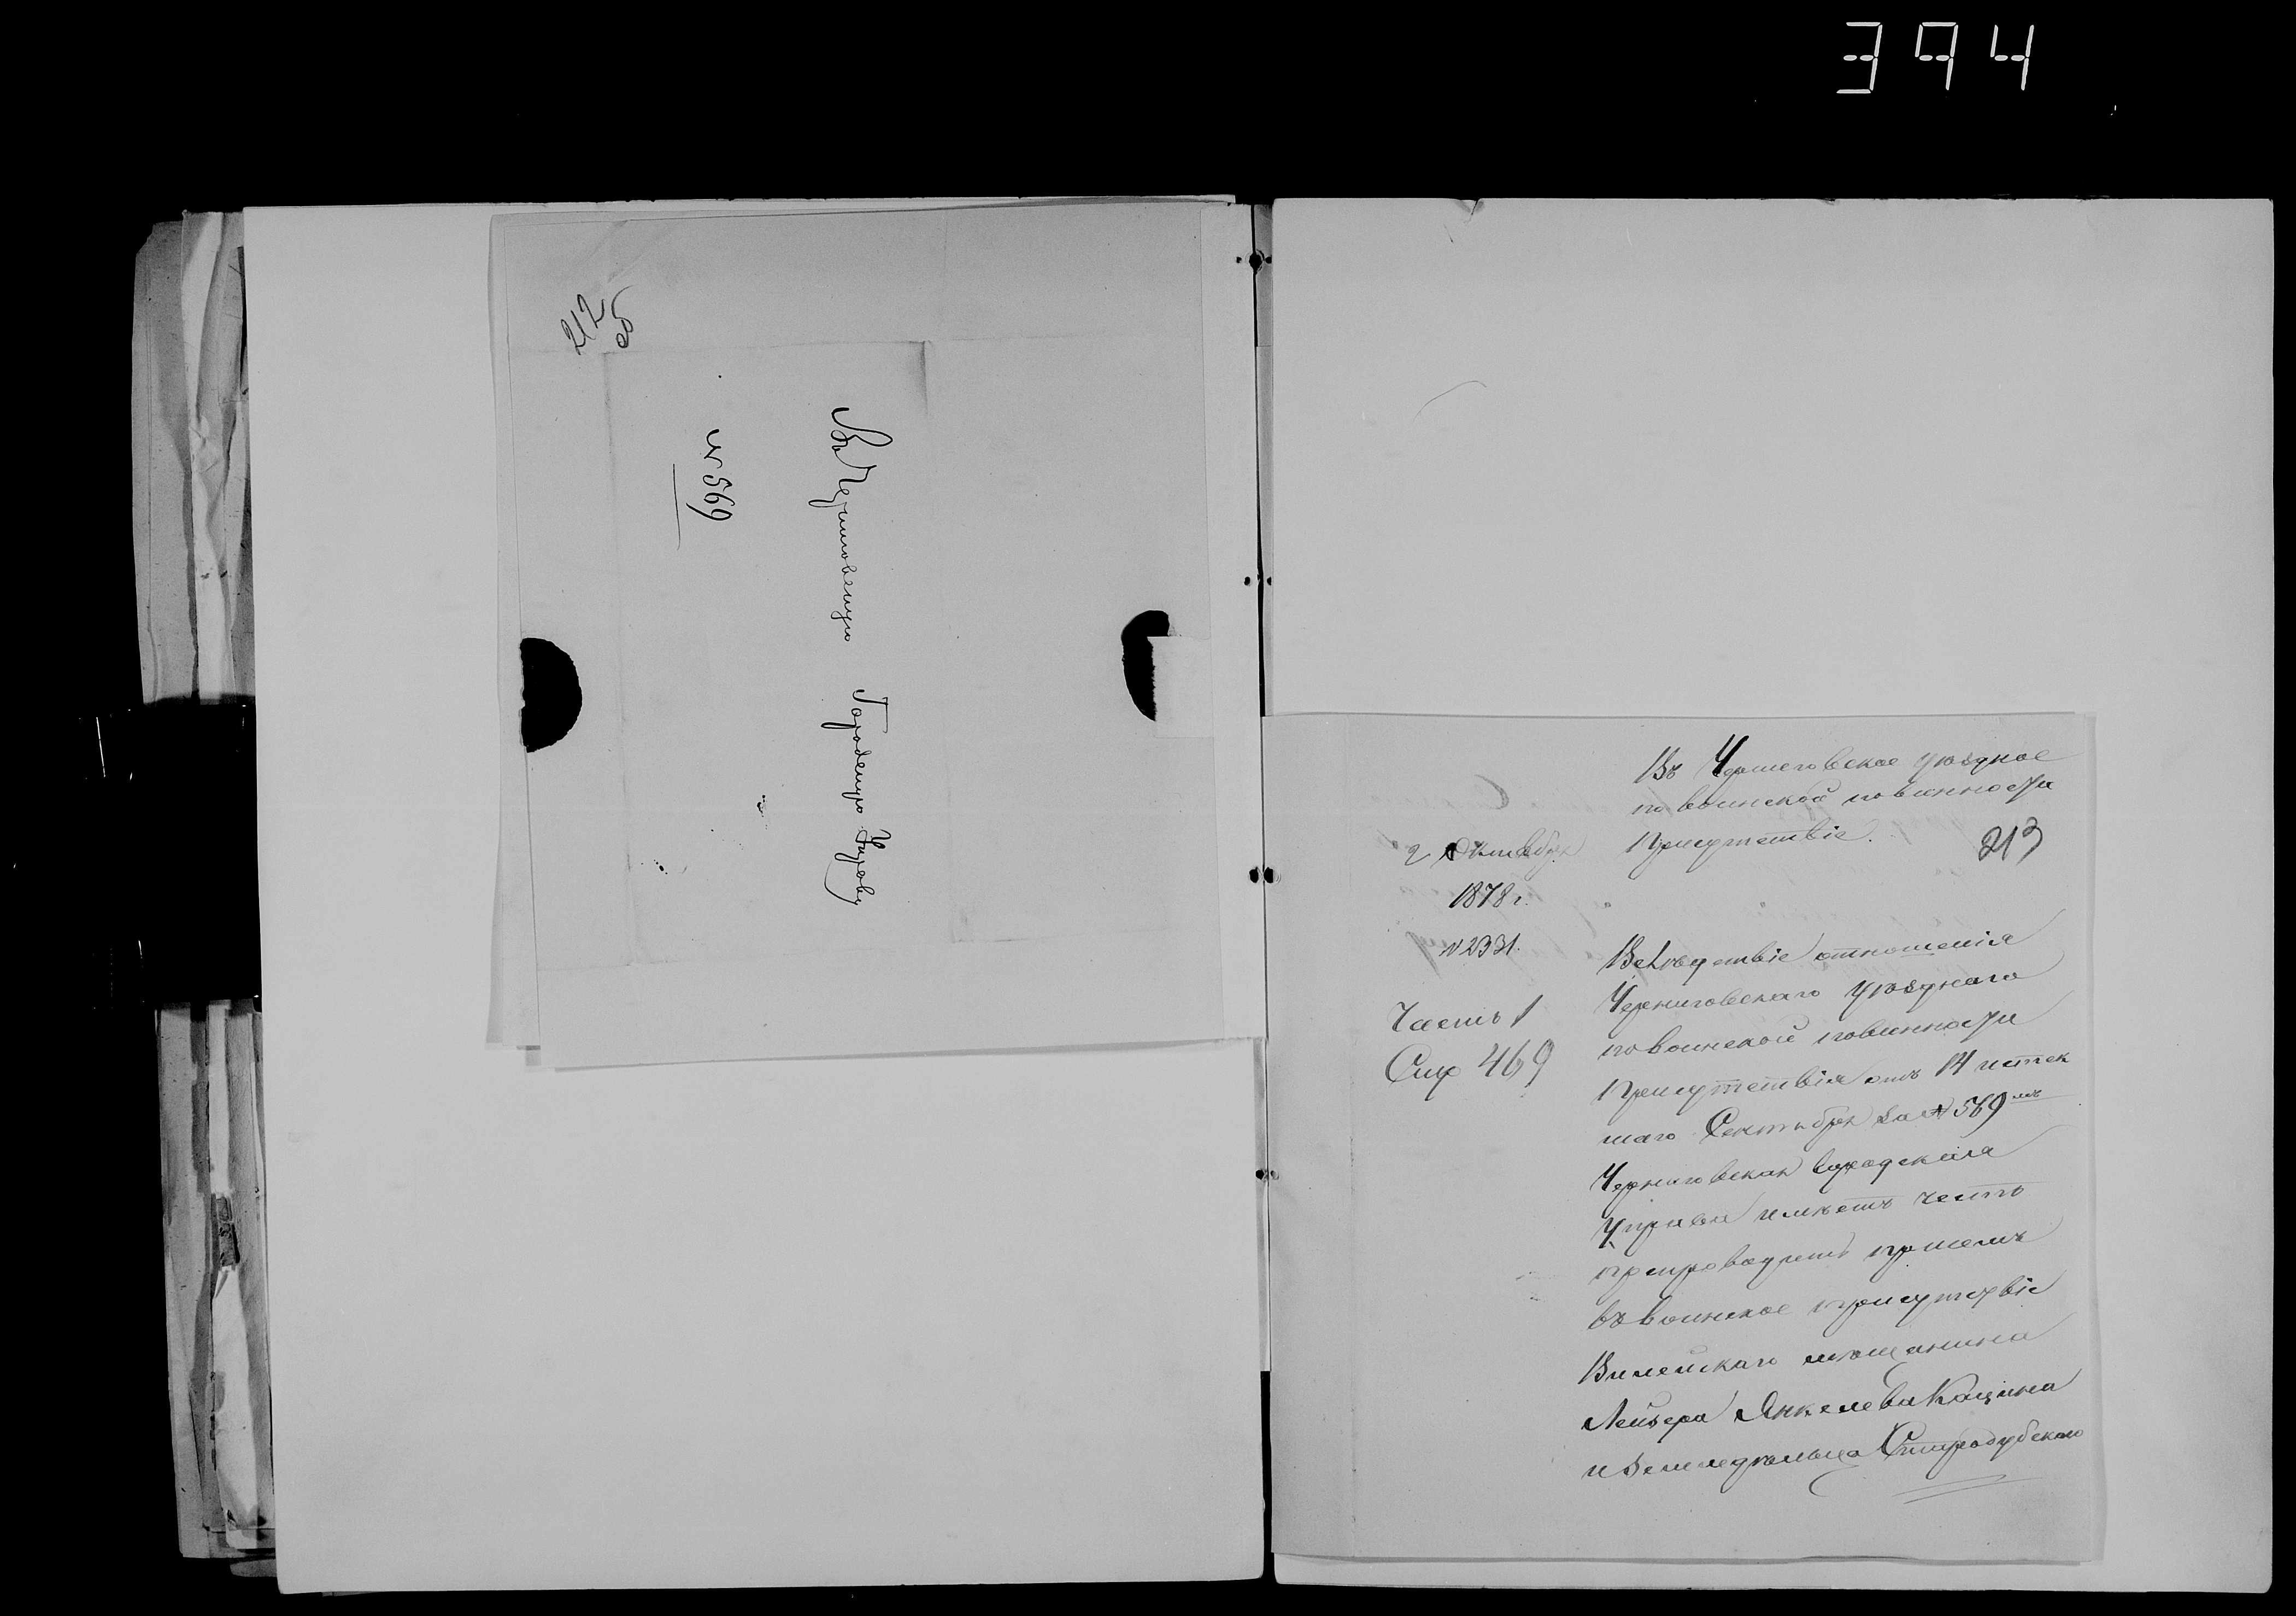 394
212
об
Въ Черниговскую Городскую Управу
№ 569
Въ Черниговское уѣздное
по воинской повинности
Присутствіе.
213
2 Октября
1878 г.
№ 2331.
Часть 1
Вслѣдствіе отношенія
Черниговскаго уѣзднаго
по воинской повинности
Присутствія отъ 14 истек
шаго Сентября за № 569мъ
Черниговская Городская
Управа имѣетъ честь
препроводить при семъ
въ воинское присутствіе
Вилейскаго мѣщанина
Лейзера Янкелева Кацина
и земледѣльца Стародубскаго